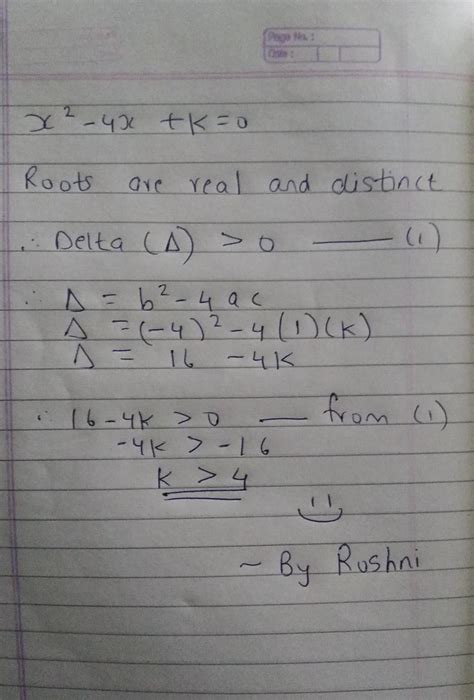 Page No. :
Date :
x² - 4x + k = 0
Roots are real and distinct
∴ Delta (Δ) > 0 —— (1)
∴ Δ = b² - 4 a c
Δ = (-4)² - 4 (1) (k)
Δ = 16 - 4k
∴ 16 - 4k > 0 — from (1)
-4k > -16
k > 4
~ By Roshni